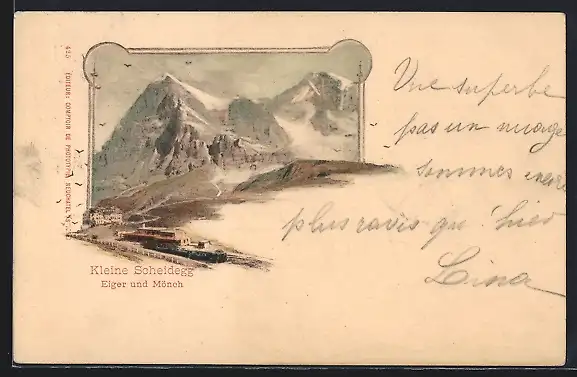 455 EDITEUR: COMPTOIR DE PHOTOTYPIE, NEUCHATEL
Kleine Scheidegg
Eiger und Mönch
Vue superbe
pas un nuage
sommes encore
plus ravis qu'hier
Lina